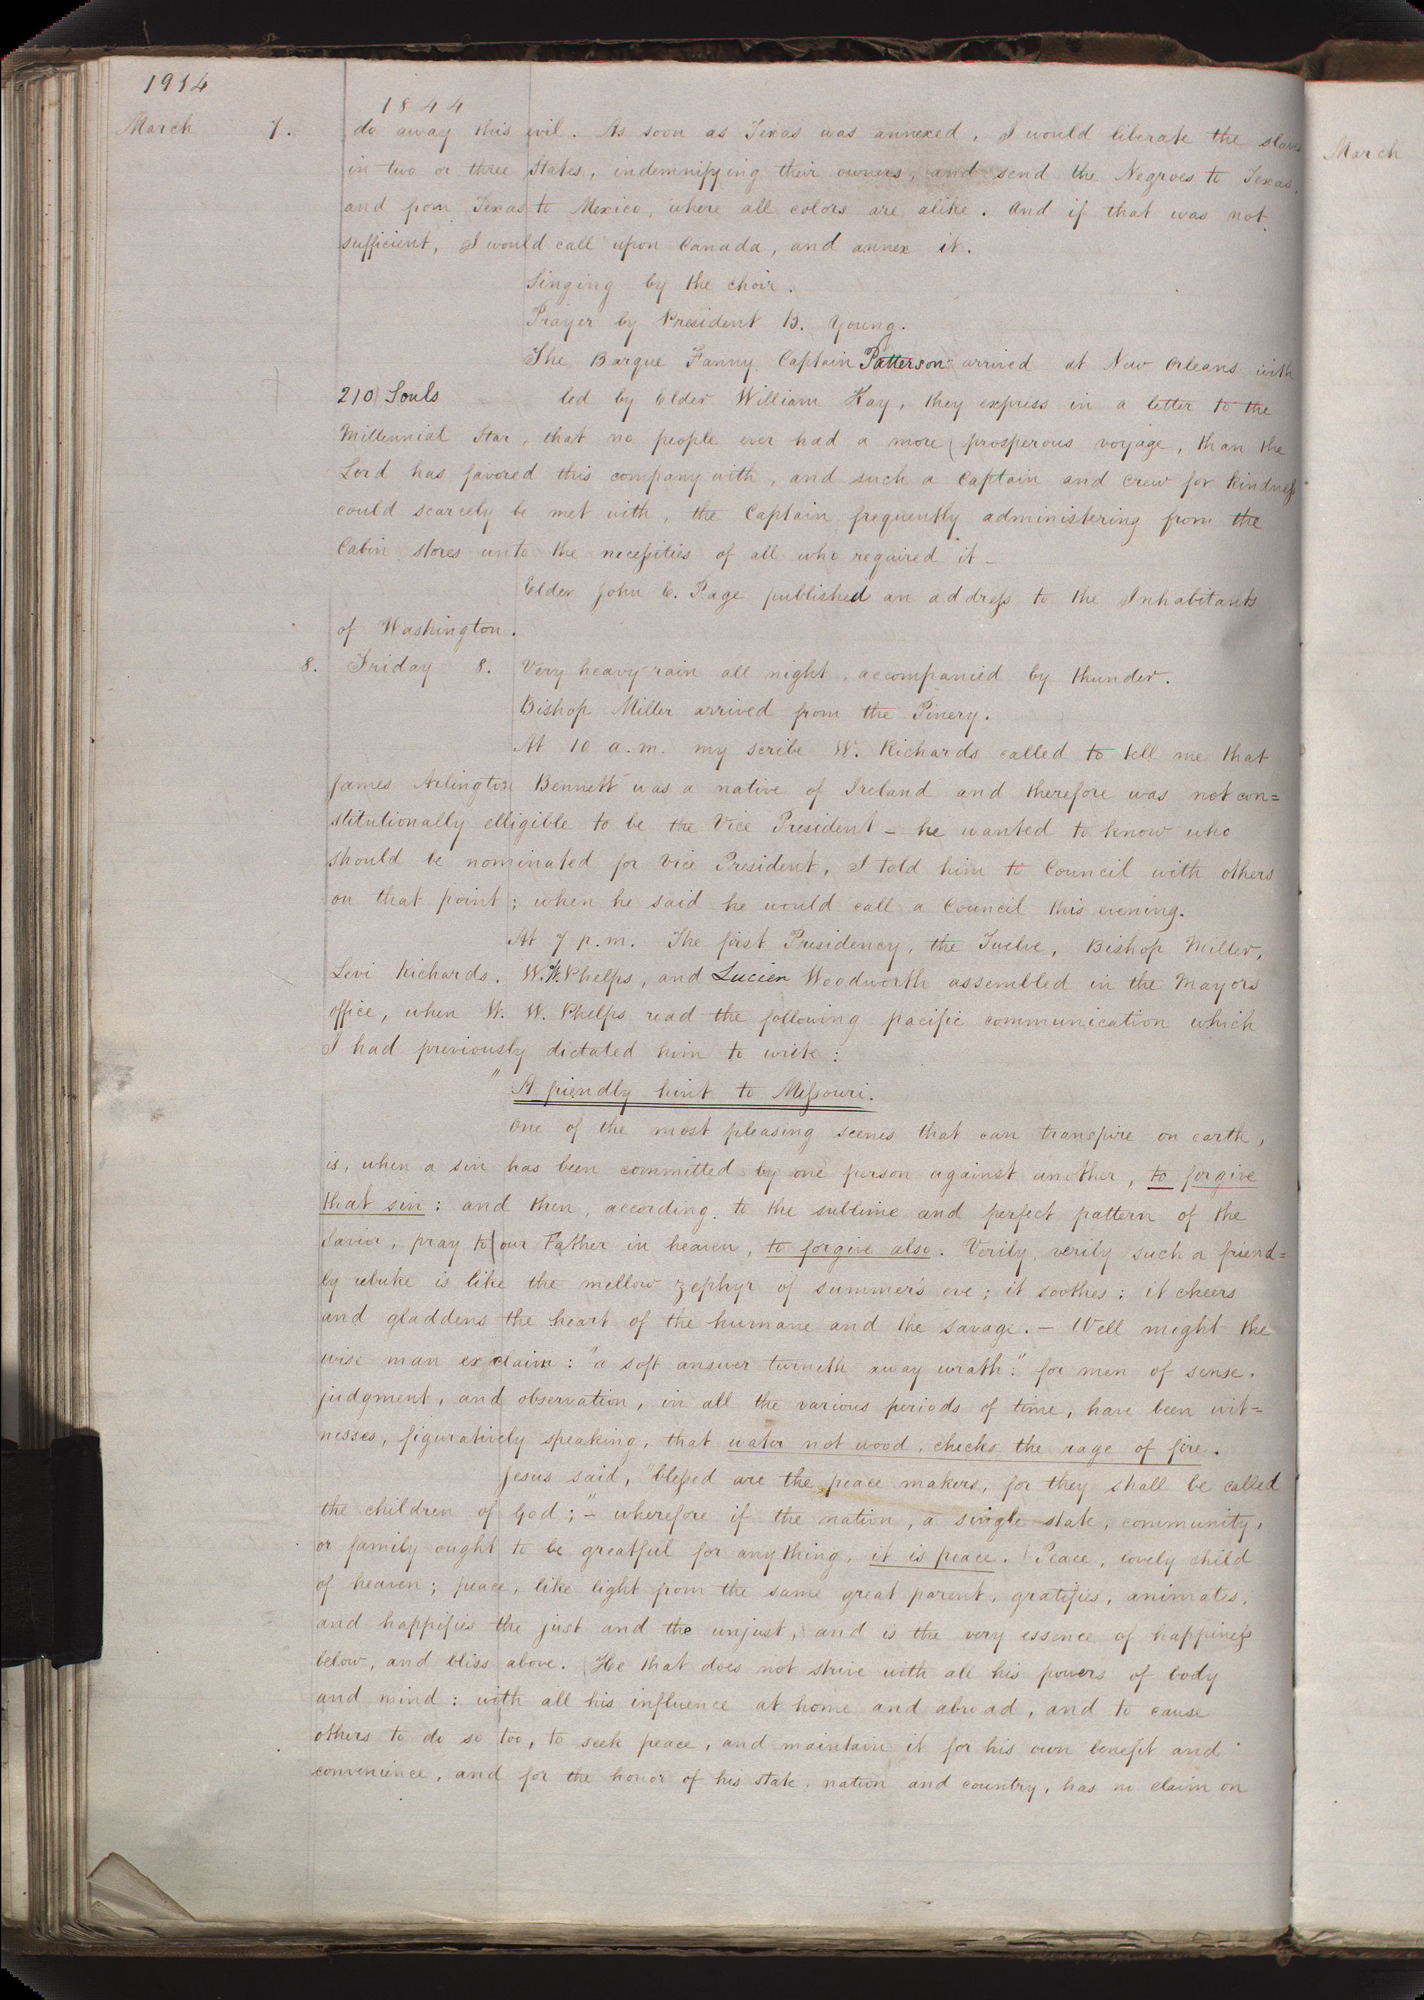 1914
1844
March 7. do away this evil. As soon as Texas was annexed, I would liberate the slaves
in two or three States, indemnifying their owners, and send the Negroes to Texas,
and from Texas to Mexico, where all colors are alike. And if that was not
sufficient, I would call upon Canada, and annex it.
Singing by the choir.
Prayer by President B. Young.
The Barque Fanny Captain Patterson arrived at New Orleans with
210 Souls led by Elder William Kay, they express in a letter to the
Millennial Star, that no people ever had a more prosperous voyage, than the
Lord has favored this company with, and such a Captain and crew for kindness
could scarcely be met with, the Captain frequently administering from the
Cabin stores unto the necessities of all who required it –
Elder John E. Page published an address to the Inhabitants
of Washington.
8. Friday 8. Very heavy rain all night, accompanied by thunder.
Bishop Miller arrived from the Pinery.
At 10 a.m. my scribe W. Richards called to tell me that
James Arlington Bennett was a native of Ireland and therefore was not con=
stitutionally elligible to be the Vice President – he wanted to know who
should be nominated for Vice President, I told him to Council with others
on that point; when he said he would call a Council this evening.
At 7 p.m. The first Presidency, the Twelve, Bishop Miller,
Levi Richards, W.W. Phelps, and Lucien Woodworth assembled in the Mayors
office, when W. W. Phelps read the following pacific communication which
I had previously dictated him to write:
"A friendly hint to Missouri.
One of the most pleasing scenes that can transpire on earth,
is, when a sin has been committed by one person against another, to forgive
that sin: and then, according to the sublime and perfect pattern of the
Savior, pray to our Father in heaven, to forgive also. Verily, verily such a friend=
ly rebuke is like the mellow zephyr of summer's eve; it soothes; it cheers
and gladdens the heart of the humane and the savage. – Well might the
wise man exclaim: "a soft answer turneth away wrath:" for men of sense,
judgment, and observation, in all the various periods of time, have been wit=
nesses, figuratively speaking, that water not wood, checks the rage of fire.
Jesus said, "blessed are the peace makers, for they shall be called
the children of God;" – wherefore if the nation, a single state, community,
or family ought to be greatful for anything, it is peace. Peace, lovely child
of heaven; peace, like light from the same great parent, gratifies, animates,
and happifies the just and the unjust, and is the very essence of happiness
below, and bliss above. He that does not strive with all his powers of body
and mind: with all his influence at home and abroad, and to cause
others to do so too, to seek peace, and maintain it for his own benefit and
convenience, and for the honor of his state, nation and country, has no claim on
March